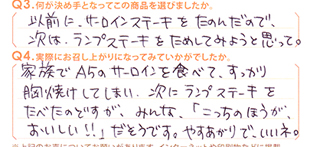 Q3.何が決め手となってこの商品を選びましたか。
以前に、サーロインステーキをたのんだので、
次は、ランプステーキをためしてみようと思って。
Q4.実際にお召し上がりになってみていかがでしたか。
家族でA5のサーロインを食べて、すっかり
胸焼けしてしまい、次にランプステーキを
たべたのどすが、みんな、「こっちのほうが、
おいしい!!」だそうです。やすあがりで、いいネ。